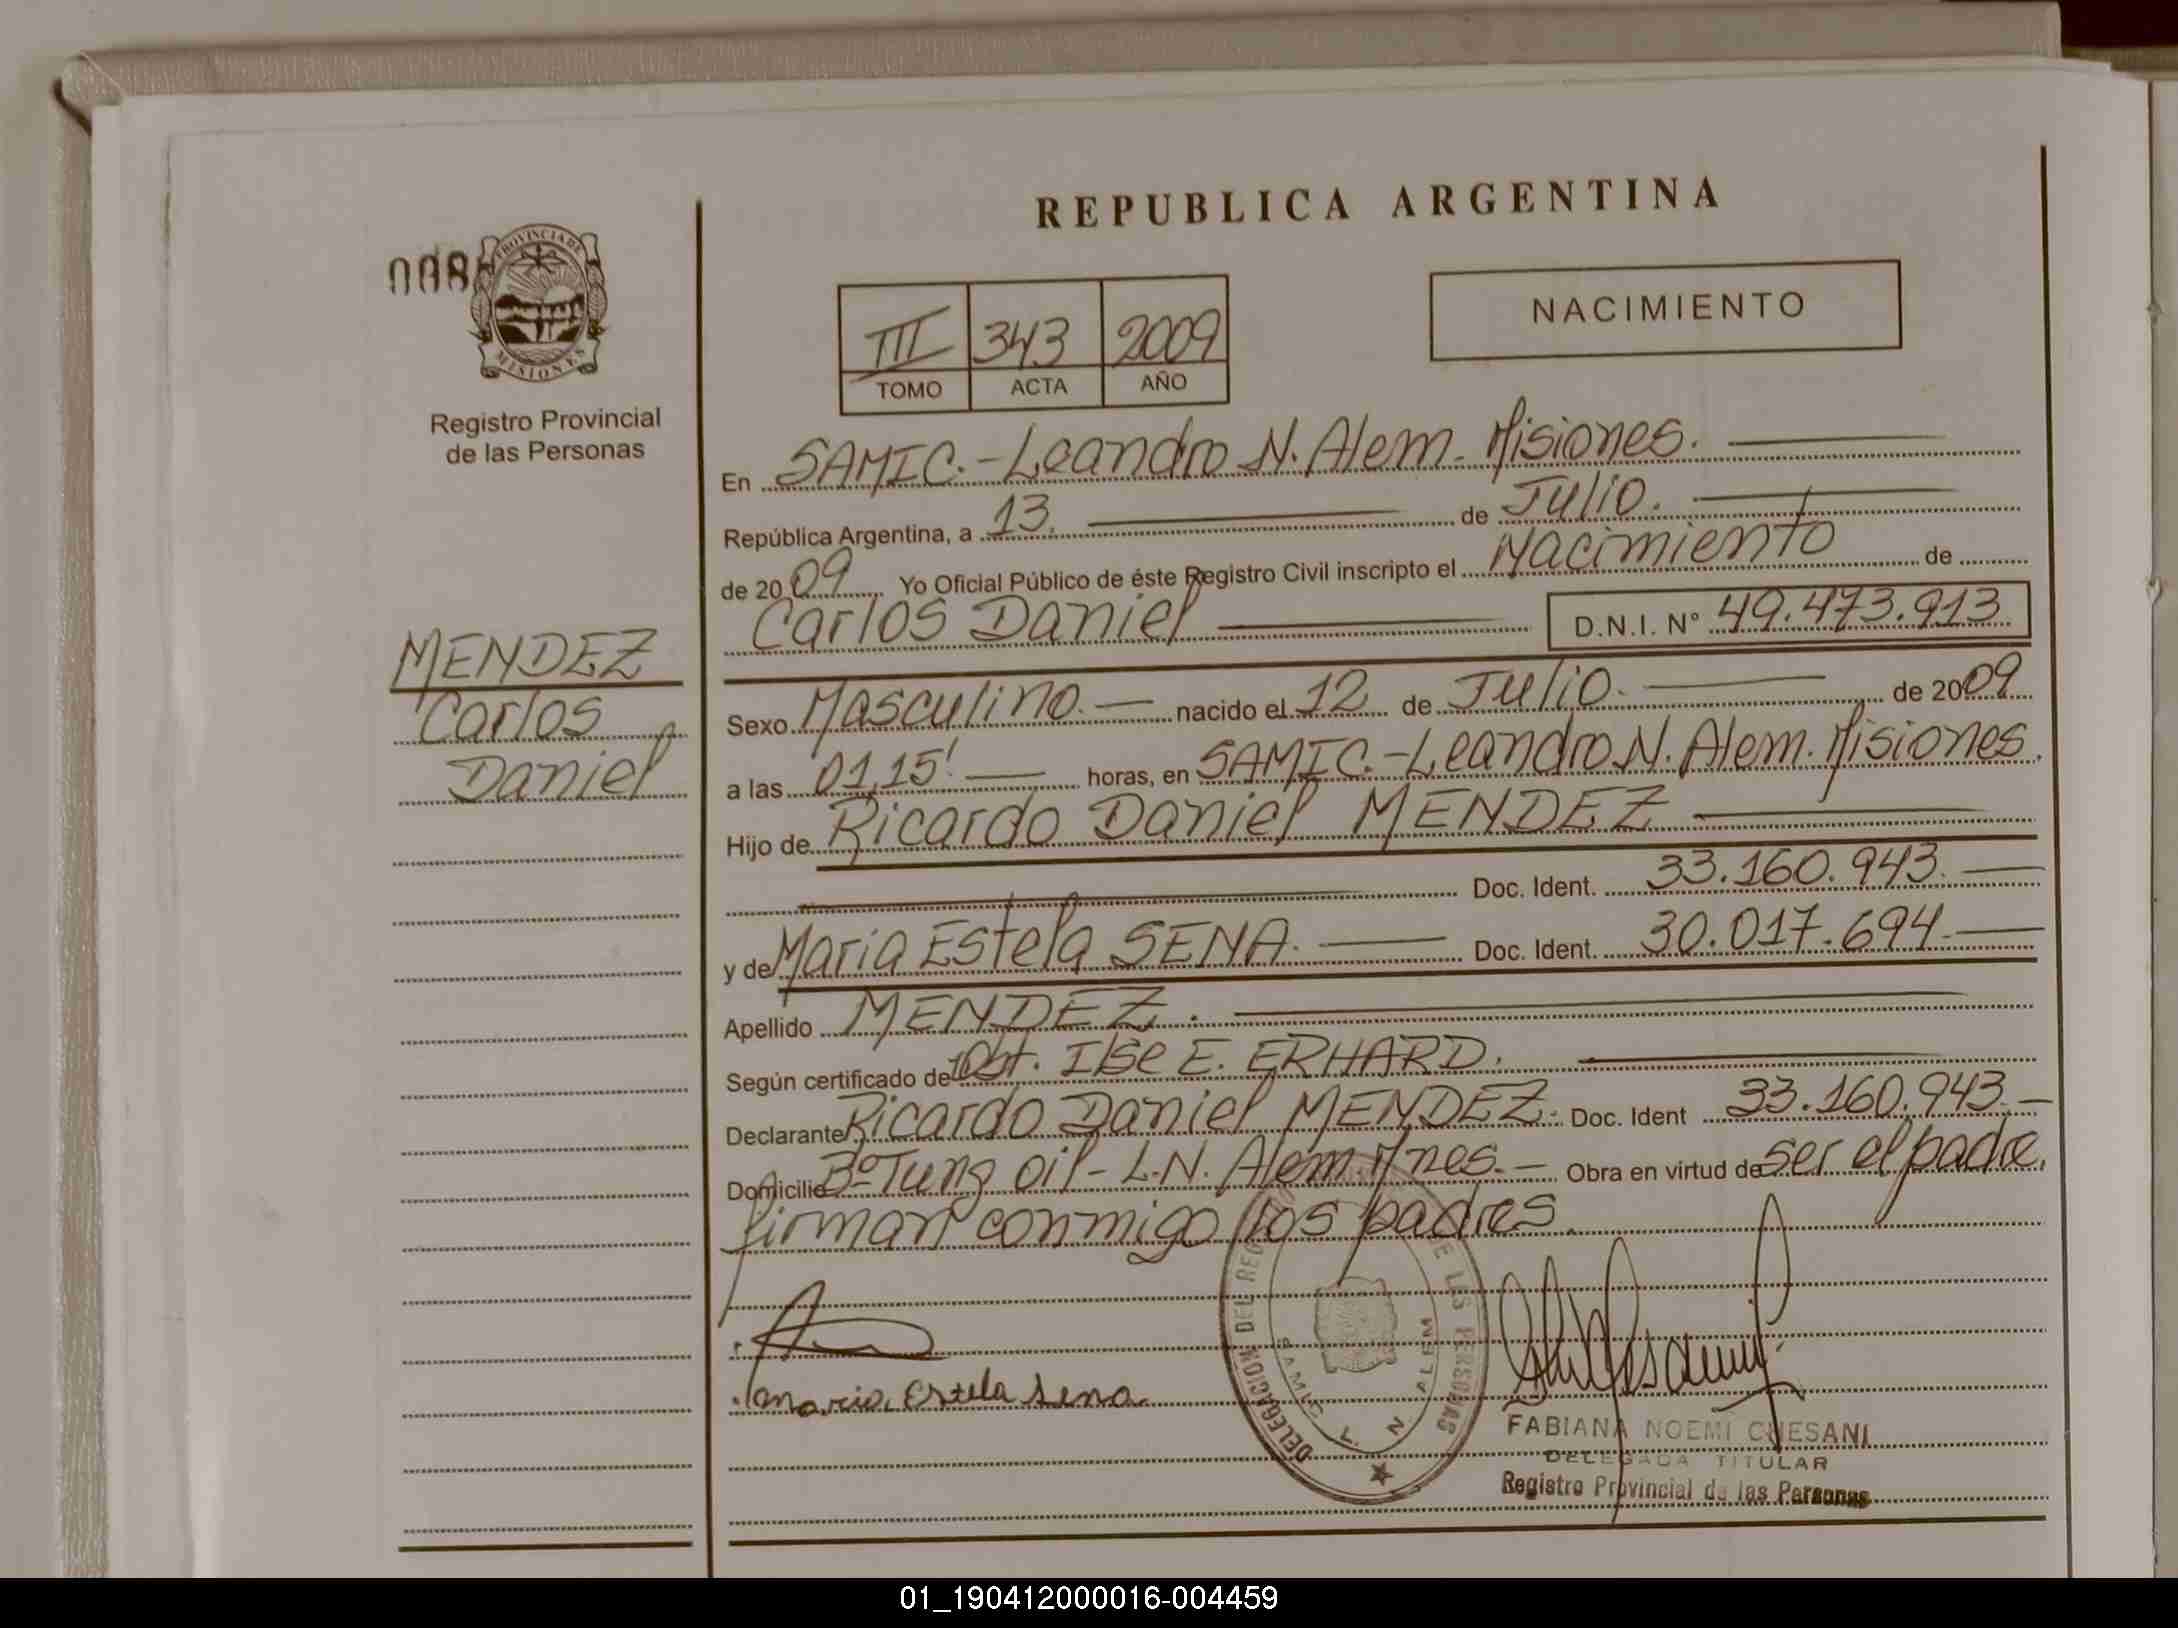 REPUBLICA ARGENTINA
008
PROVINCIA DE
MISIONES
Registro Provincial
de las Personas
III 343 2009
TOMO ACTA AÑO
NACIMIENTO
En SAMIC.-Leandro N. Alem. Misiones.
República Argentina, a 13. de Julio.
de 2009 Yo Oficial Público de éste Registro Civil inscripto el Nacimiento de
Carlos Daniel D.N.I. N° 49.473.913
MENDEZ
Carlos
Daniel
Sexo Masculino. nacido el 12 de Julio. de 2009
a las 01,15' horas, en SAMIC.-Leandro N. Alem. Misiones.
Hijo de Ricardo Daniel MENDEZ
Doc. Ident. 33.160.943.
y de Maria Estela SENA. Doc. Ident. 30.017.694.
Apellido MENDEZ.
Según certificado de Obst. Ilse E. ERHARD.
Declarante Ricardo Daniel MENDEZ. Doc. Ident 33.160.943.
Domicilio B° Tung oil - L.N. Alem. Mnes. Obra en virtud de ser el padre,
firman conmigo los padres.
Maria Estela Sena.
DELEGACION DEL REG DE LAS PERSONAS
SAMIC L. N. ALEM
FABIANA NOEMI CHESANI
DELEGADA TITULAR
Registro Provincial de las Personas
01_190412000016-004459